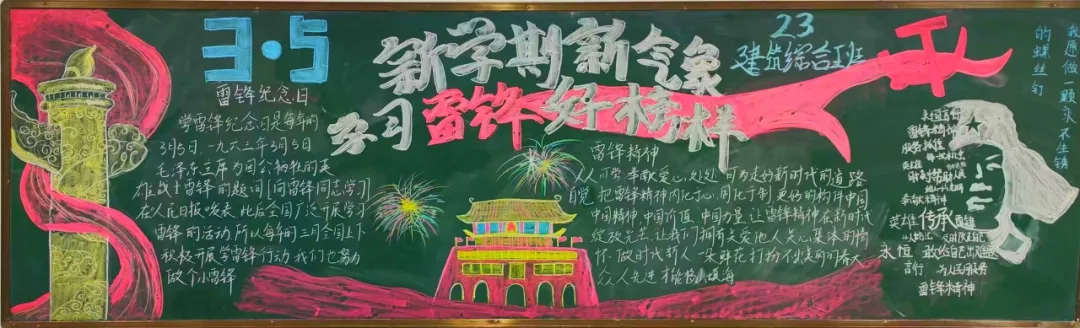 3·5
雷锋纪念日
学雷锋纪念日是每年的
3月5日、一九六三年3月5日
毛泽东主席为因公牺牲的英
雄战士雷锋的题词"向雷锋同志学习"
在人民日报发表 此后全国广泛开展学习
雷锋的活动 所以每年的三月全国上下
积极开展学雷锋行动 我们也努力
做个小雷锋
新学期新气象
学习雷锋好榜样
23
建筑综合班
雷锋精神
人人可学 奉献爱心,处处可为走好新时代的道路
自觉把雷锋精神内化于心、用化于制 更好的构件中国
中国精神、中国价值 中国力量 让雷锋精神在新时代
绽放光芒 让我们拥有关爱他人关心集体的情
怀 做时代新人 一朵鲜花打扮不出美丽的春天
众人先进才能移山填海
我愿做一颗永不生锈
的螺丝钉
雷锋精神
服务
奉献精神
英雄 传承
永恒 敢给自己出难题
言行 为人民服务
雷锋精神